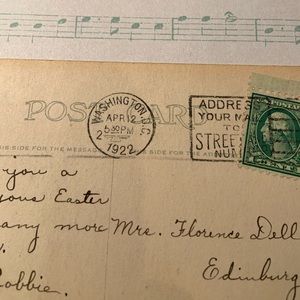 POST CARD
WASHINGTON, D.C.
APR 12
5 30 PM
2
1922
ADDRESS
YOUR MA
TO
STREET
NUM
THIS SIDE FOR THE MESSAGE
THIS SIDE FOR THE
you a
ous Easter
any more
obbie.
Mrs. Florence Dell
Edinburg
CENT